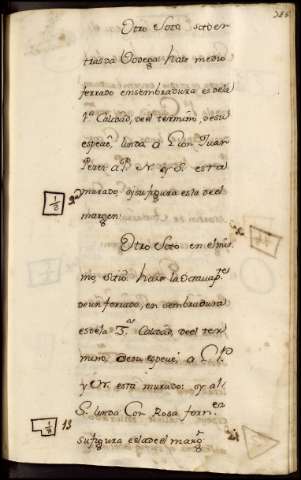 Otro Soto
tras da Bodega: haze medio
ferrado en sembradura es dela
1ª Calidad, de el termino, de su
espeçe, linda a P. con Juan
Perez a P. N. y S. esta
murado y su figura esta de el
margen.
1/2 2ª
Otro Soto en el mis-
mo sitio haze la octava pte
de un ferrado, en sembradura
es de la 3ª Calidad, de el ter-
mino de su espeçe, a L. P.
y N. esta murado: y al
S. linda Con Rosa fernez
1/8 13
su figura es la de el margn